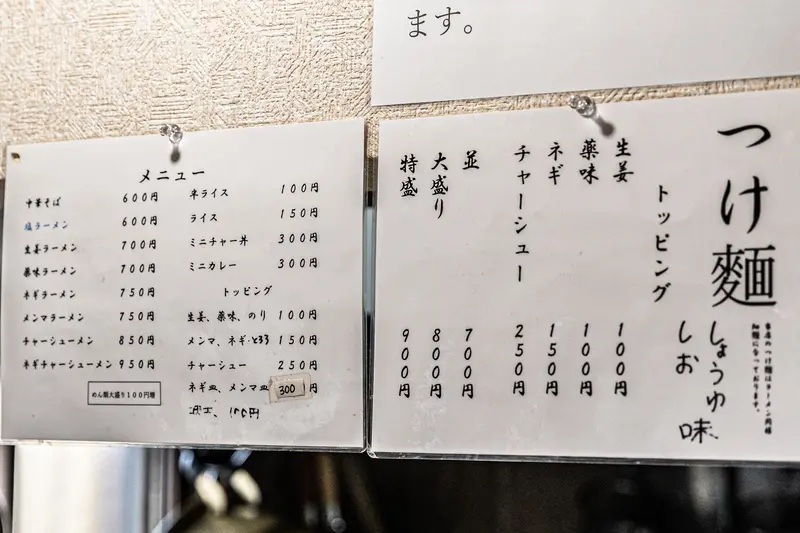 ます。
メニュー
中華そば 600円
塩ラーメン 600円
生姜ラーメン 700円
薬味ラーメン 700円
ネギラーメン 750円
メンマラーメン 750円
チャーシューメン 850円
ネギチャーシューメン 950円
めん類大盛り100円増
半ライス 100円
ライス 150円
ミニチャー丼 300円
ミニカレー 300円
トッピング
生姜、薬味、のり 100円
メンマ、ネギ・とろろ 150円
チャーシュー 250円
ネギ皿、メンマ皿 300円
100円
つけ麺
しょうゆ
しお
味
当店のつけ麺はラーメン同様
細麺になっております。
トッピング
生姜 100円
薬味 100円
ネギ 150円
チャーシュー 250円
並 700円
大盛り 800円
特盛 900円